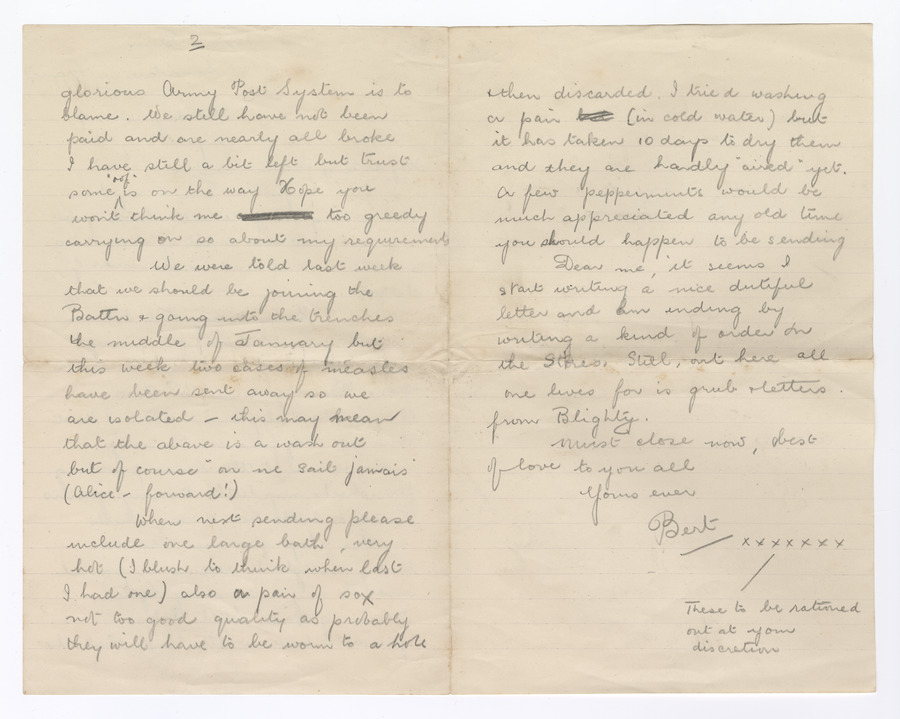 2
glorious Army Post System is to
blame. We still have not been
paid and are nearly all broke
I have still a bit left but trust
some "oof" is on the way Hope you
won't think me too greedy
carrying on so about my requirements
We were told last week
that we should be joining the
Battn & going into the trenches
the middle of January but
this week two cases of measles
have been sent away so we
are isolated - this may mean
that the above is a wash out
but of course "on ne sait jamais"
(Alice - forward!)
When next sending please
include one large bath, very
hot (I blush to think when last
I had one) also a pair of sox
not too good quality as probably
they will have to be worn to a hole
& then discarded. I tried washing
a pair (in cold water) but
it has taken 10 days to dry them
and they are hardly "aired" yet.
A few peppermints would be
much appreciated any old time
you should happen to be sending
Dear me, it seems I
start writing a nice dutiful
letter and am ending by
writing a kind of order on
the Stores. Still, out here all
one lives for is grub & letters.
from Blighty.
Must close now, best
of love to you all
Yours ever
Bert
x x x x x x x
These to be rationed
out at your
discretion